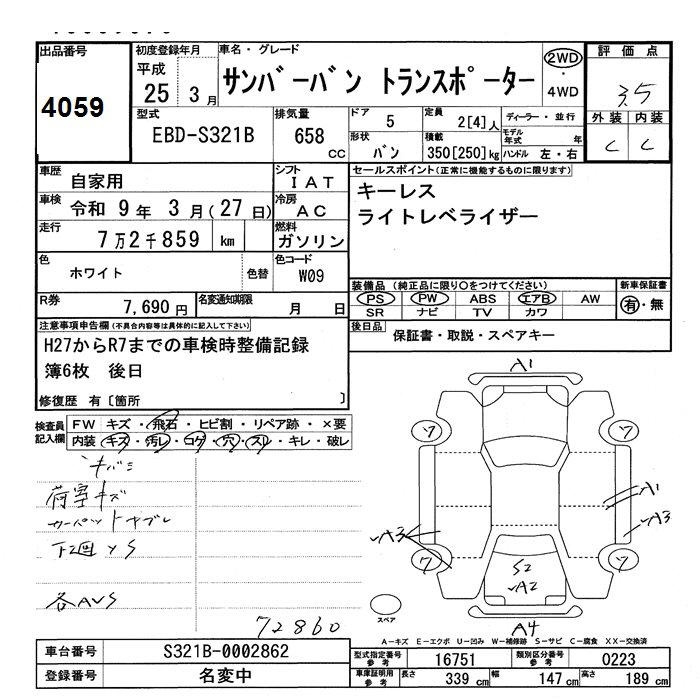 出品番号
4059
初度登録年月
平成
25 3 月
車名・グレード
サンバーバン トランスポーター
2WD
・
4WD
評価点
3.5
外装 内装
C C
型式
EBD-S321B
排気量
658
CC
ドア 5
定員 2[4]人
ディーラー・並行
形状 バン
積載 350[250]kg
モデル年式 年
ハンドル 左・右
車歴 自家用
シフト IAT
車検 令和 9年 3月(27日)
冷房 AC
走行 7万2千859 km
燃料 ガソリン
色 ホワイト 色替
色コード W09
R券 7,690円
名変通知期限 月 日
セールスポイント(正常に機能するものに限ります)
キーレス
ライトレベライザー
装備品 (純正品に限り○をつけてください)
PS PW ABS エアB AW
SR ナビ TV カワ
新車保証書
有・無
後日品 保証書・取説・スペアキー
注意事項申告欄(不具合内容等は具体的に記入して下さい)
H27からR7までの車検時整備記録
簿6枚 後日
修復歴 有〔箇所 〕
検査員記入欄
FW キズ・飛石・ヒビ割・リペア跡・×要
内装 キズ・汚レ・コゲ・穴・スレ・キレ・破レ
荷室キズ
下回 S
72860
A1
ワ ワ
A1
A3 A3
ワ ワ
S2
A2
A4
スペア
A-キズ E-エクボ U-凹み W-補修跡 S-サビ C-腐食 XX-交換済
車台番号 S321B-0002862
登録番号 名変中
型式指定番号 参考 16751
類別区分番号 参考 0223
車庫証明用 参考 長さ 339 cm 幅 147 cm 高さ 189 cm